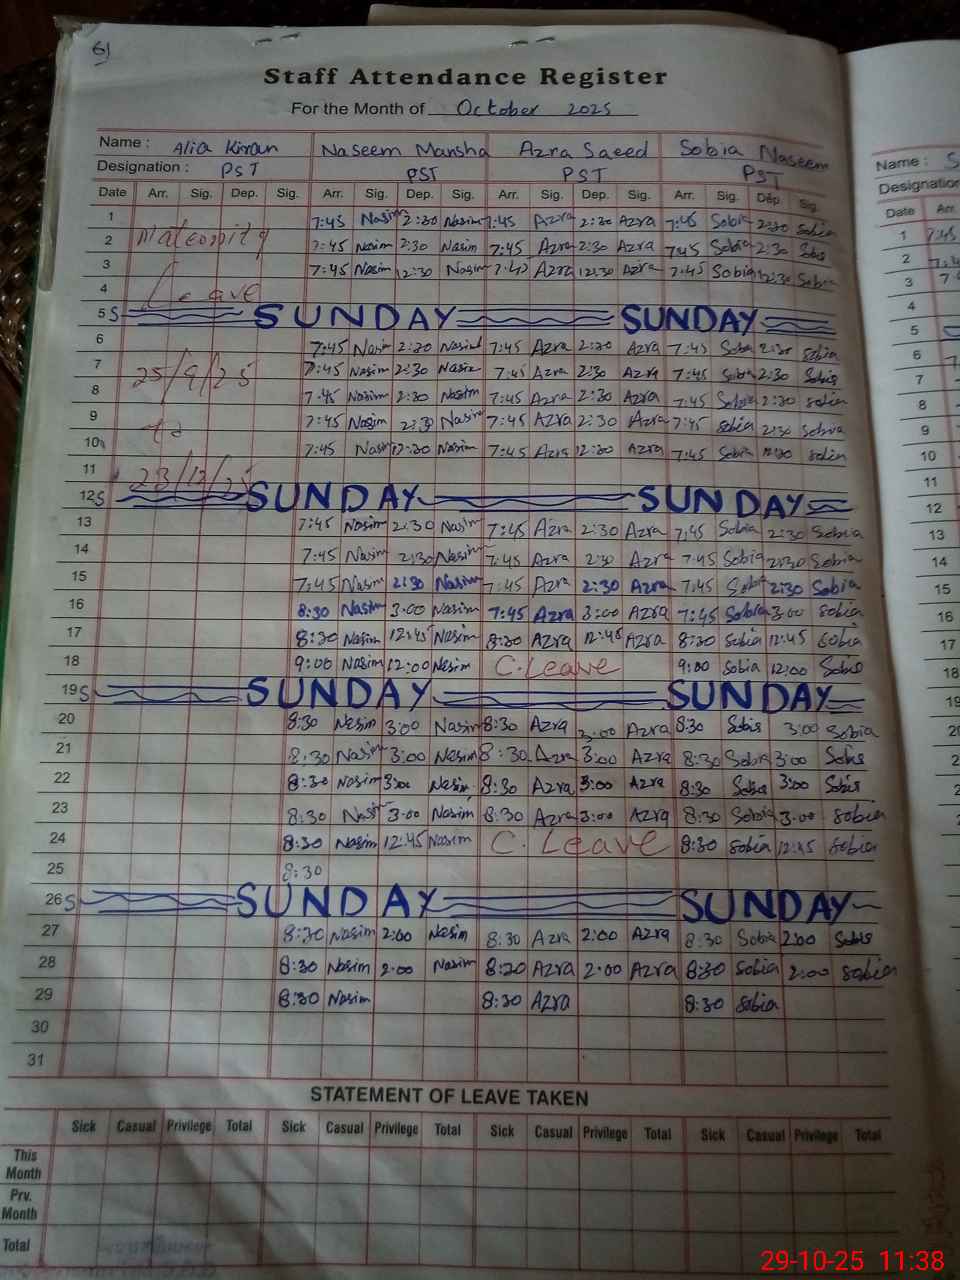 61
Staff Attendance Register
For the Month of October 2025
Name : Alia Kiran Naseem Mansha Azra Saeed Sobia Naseem
Designation : PST PST PST PST
Date Arr. Sig. Dep. Sig. Arr. Sig. Dep. Sig. Arr. Sig. Dep. Sig. Arr. Sig. Dep. Sig.
1 7:45 Nasim 2:30 Nasim 7:45 Azra 2:30 Azra 7:45 Sobia 2:30 Sobia
2 Maternity 7:45 Nasim 2:30 Nasim 7:45 Azra 2:30 Azra 7:45 Sobia 2:30 Sobia
3 7:45 Nasim 12:30 Nasim 7:45 Azra 12:30 Azra 7:45 Sobia 12:30 Sobia
4 Leave
5 S SUNDAY SUNDAY
6 7:45 Nasim 2:30 Nasim 7:45 Azra 2:30 Azra 7:45 Sobia 2:30 Sobia
7 25/9/25 7:45 Nasim 2:30 Nasim 7:45 Azra 2:30 Azra 7:45 Sobia 2:30 Sobia
8 7:45 Nasim 2:30 Nasim 7:45 Azra 2:30 Azra 7:45 Sobia 2:30 Sobia
9 to 7:45 Nasim 2:30 Nasim 7:45 Azra 2:30 Azra 7:45 Sobia 2:30 Sobia
10 7:45 Nasim 12:30 Nasim 7:45 Azra 12:30 Azra 7:45 Sobia 12:30 Sobia
11 23/12/25
12 S SUNDAY SUNDAY
13 7:45 Nasim 2:30 Nasim 7:45 Azra 2:30 Azra 7:45 Sobia 2:30 Sobia
14 7:45 Nasim 2:30 Nasim 7:45 Azra 2:30 Azra 7:45 Sobia 2:30 Sobia
15 7:45 Nasim 2:30 Nasim 7:45 Azra 2:30 Azra 7:45 Sobia 2:30 Sobia
16 8:30 Nasim 3:00 Nasim 7:45 Azra 3:00 Azra 7:45 Sobia 3:00 Sobia
17 8:30 Nasim 12:45 Nasim 8:30 Azra 12:45 Azra 8:30 Sobia 12:45 Sobia
18 9:00 Nasim 12:00 Nasim C.Leave 9:00 Sobia 12:00 Sobia
19 S SUNDAY SUNDAY
20 8:30 Nasim 3:00 Nasim 8:30 Azra 3:00 Azra 8:30 Sobia 3:00 Sobia
21 8:30 Nasim 3:00 Nasim 8:30 Azra 3:00 Azra 8:30 Sobia 3:00 Sobia
22 8:30 Nasim 3:00 Nasim 8:30 Azra 3:00 Azra 8:30 Sobia 3:00 Sobia
23 8:30 Nasim 3:00 Nasim 8:30 Azra 3:00 Azra 8:30 Sobia 3:00 Sobia
24 8:30 Nasim 12:45 Nasim C. Leave 8:30 Sobia 12:45 Sobia
25 8:30
26 S SUNDAY SUNDAY
27 8:30 Nasim 2:00 Nasim 8:30 Azra 2:00 Azra 8:30 Sobia 2:00 Sobia
28 8:30 Nasim 2:00 Nasim 8:30 Azra 2:00 Azra 8:30 Sobia 2:00 Sobia
29 8:30 Nasim 8:30 Azra 8:30 Sobia
30
31
STATEMENT OF LEAVE TAKEN
Sick Casual Privilege Total Sick Casual Privilege Total Sick Casual Privilege Total Sick Casual Privilege Total
This
Month
Prv.
Month
Total
Name :
Designation
Date Arr.
1 7:45
2
3
5
6
7
8
9
10
11
12
13
14
15
16
17
18
19
29-10-25 11:38